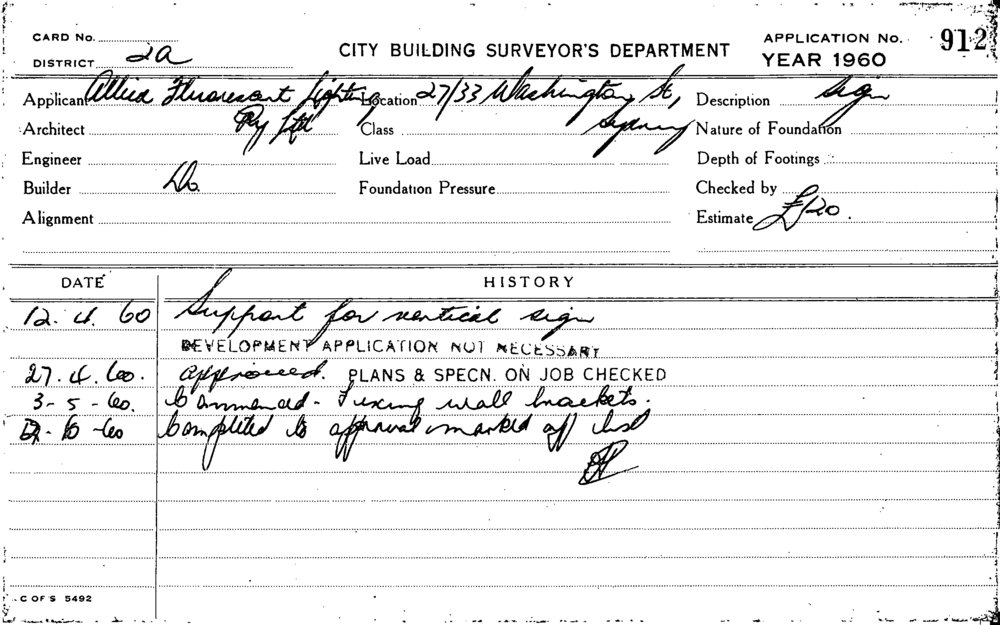 CARD No.
DISTRICT 2a
CITY BUILDING SURVEYOR'S DEPARTMENT
APPLICATION No. 912
YEAR 1960
Applicant Allied Fluorescent Lighting Location 27/33 Washington St, Description Sign
Architect Pty Ltd Class Sydney Nature of Foundation
Engineer Live Load Depth of Footings
Builder Do. Foundation Pressure Checked by
Alignment Estimate £120.
DATE HISTORY
12. 4. 60 Support for vertical sign
DEVELOPMENT APPLICATION NOT NECESSARY
27. 4. 60. approved. PLANS & SPECN. ON JOB CHECKED
3-5-60. Commenced - Fixing wall brackets.
6-60 Completed to approval marked off list
C OF S 5492